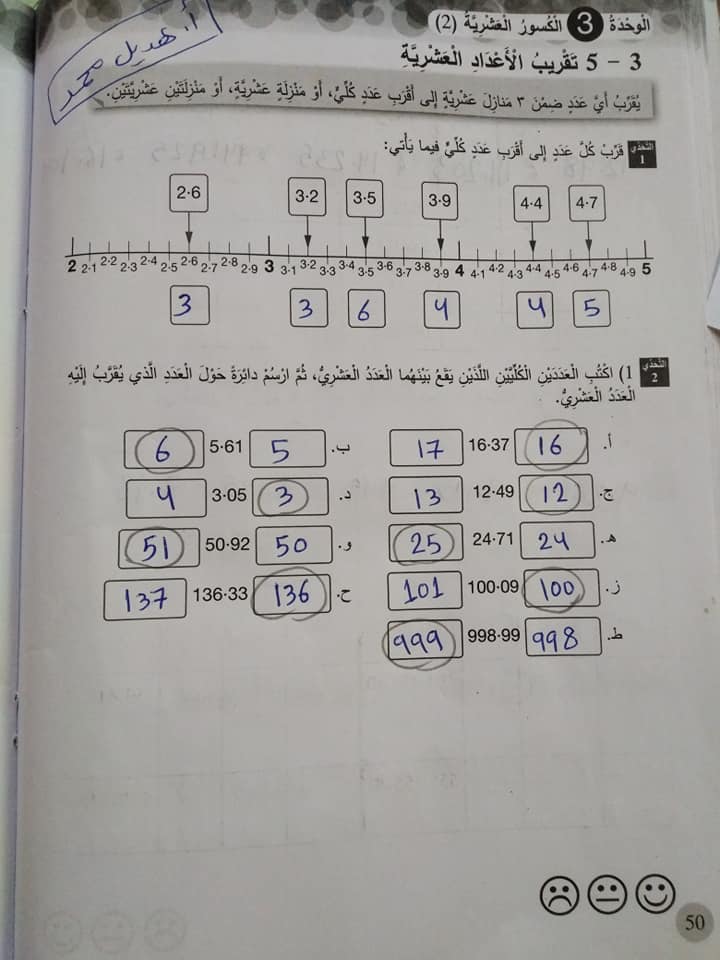 أ. هديل محمد
الْوَحْدَةُ 3 الْكُسورُ الْعَشْرِيَّةُ (2)
3 – 5 تَقْريبُ الْأَعْدادِ الْعَشْرِيَّةِ
يُقَرَّبُ أَيُّ عَدَدٍ ضِمْنَ ٣ مَنازِلَ عَشْرِيَّةٍ إِلى أَقْرَبِ عَدَدٍ كُلِّيٍّ، أَوْ مَنْزِلَةٍ عَشْرِيَّةٍ، أَوْ مَنْزِلَتَيْنِ عَشْرِيَّتَيْنِ.
التَّحَدّي 1 قَرِّبْ كُلَّ عَدَدٍ إِلى أَقْرَبِ عَدَدٍ كُلِّيٍّ فيما يَأْتي:
2·6 3·2 3·5 3·9 4·4 4·7
2 2·1 2·2 2·3 2·4 2·5 2·6 2·7 2·8 2·9 3 3·1 3·2 3·3 3·4 3·5 3·6 3·7 3·8 3·9 4 4·1 4·2 4·3 4·4 4·5 4·6 4·7 4·8 4·9 5
3 3 6 4 4 5
التَّحَدّي 2 1) اكْتُبِ الْعَدَدَيْنِ الْكُلِّيَّيْنِ اللَّذَيْنِ يَقَعُ بَيْنَهُما الْعَدَدُ الْعَشْرِيُّ، ثُمَّ ارْسُمْ دائِرَةً حَوْلَ الْعَدَدِ الَّذي يُقَرَّبُ إِلَيْهِ
الْعَدَدُ الْعَشْرِيُّ.
أ. 16 16·37 17 ب. 5 5·61 6
ج. 12 12·49 13 د. 3 3·05 4
هـ. 24 24·71 25 و. 50 50·92 51
ز. 100 100·09 101 ح. 136 136·33 137
ط. 998 998·99 999
50